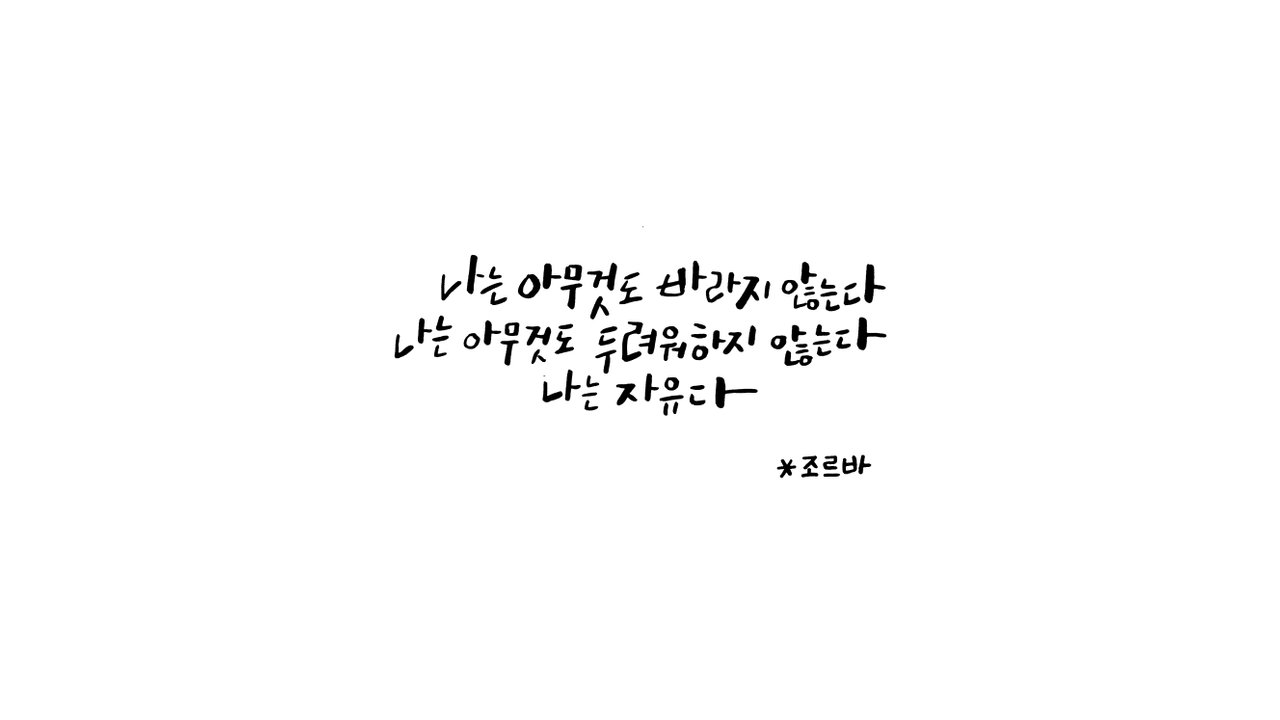 나는 아무것도 바라지 않는다
나는 아무것도 두려워하지 않는다
나는 자유다
*조르바